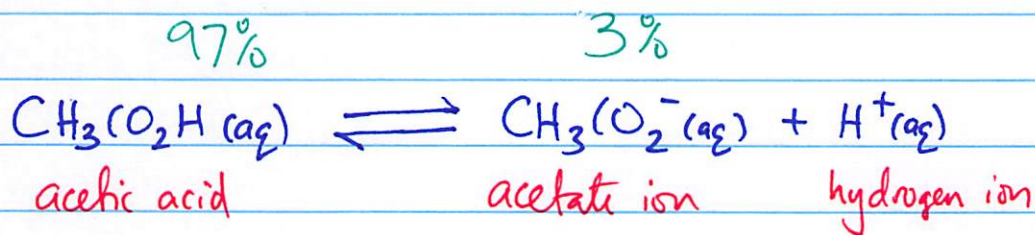 97% 3%
CH₃CO₂H (aq) ⇌ CH₃CO₂⁻(aq) + H⁺(aq)
acetic acid acetate ion hydrogen ion